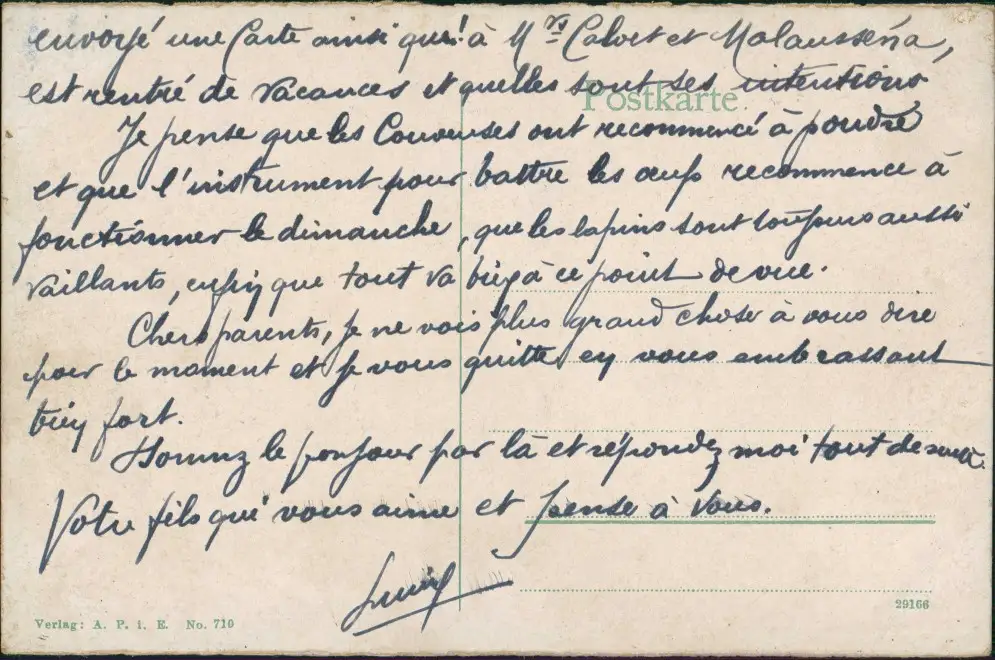 envoyé une Carte ainsi qu'à Mrs Calvet et Malausséna,
est rentré de vacances et quelles sont ses intentions
Postkarte
Je pense que les Couveuses ont recommencé à pondre
et que l'instrument pour battre les œufs recommence à
fonctionner le dimanche, que les lapins sont toujours aussi
vaillants, enfin que tout va bien à ce point de vue.
Chers parents, je ne vois plus grand chose à vous dire
pour le moment et je vous quitte en vous embrassant
bien fort.
Donnez le bonjour par là et répondez moi tout de suite.
Votre fils qui vous aime et pense à vous.
29166
Verlag: A. P. i. E. No. 710